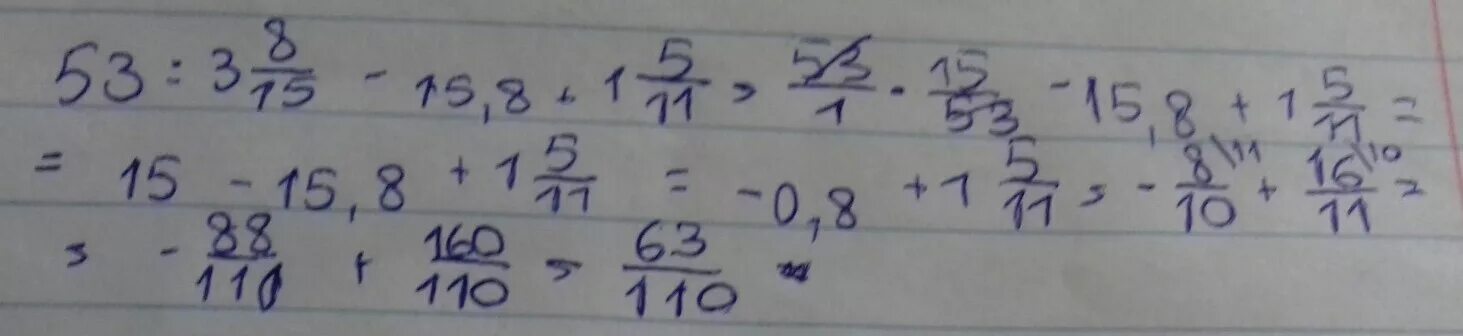 53 : 3 8/15 - 15,8 + 1 5/11 = 53/1 · 15/53 - 15,8 + 1 5/11 =
= 15 - 15,8 + 1 5/11 = -0,8 + 1 5/11 = - 8\11/10 + 16\10/11 =
= - 88/110 + 160/110 = 63/110